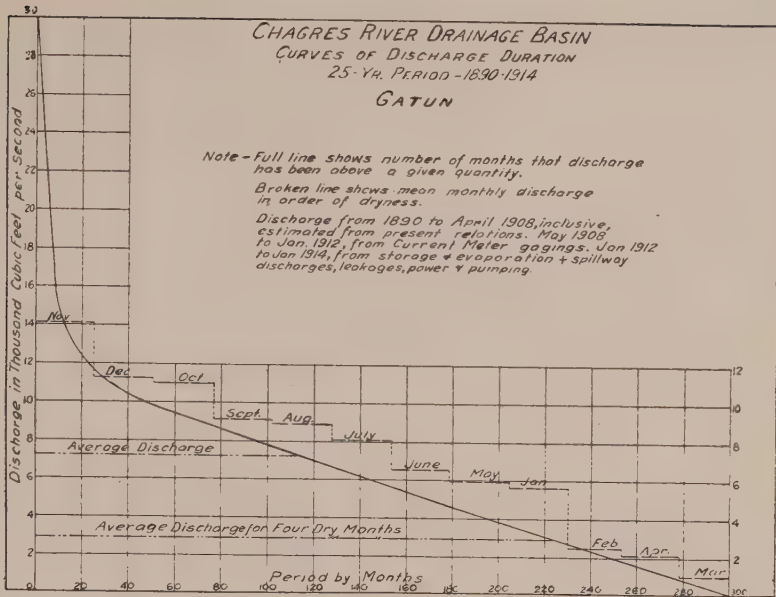 CHAGRES RIVER DRAINAGE BASIN
CURVES OF DISCHARGE DURATION
25-YR. PERIOD-1890-1914
GATUN
Note-Full line shows number of months that discharge
has been above a given quantity.
Broken line shows mean monthly discharge
in order of dryness.
Discharge from 1890 to April 1908, inclusive,
estimated from present relations. May 1908
to Jan. 1912, from Current Meter gagings. Jan 1912
to Jan 1914, from storage + evaporation + spillway
discharges, leakages, power & pumping.
Discharge in Thousand Cubic Feet per Second
30
28
26
24
22
20
18
16
14
12
10
8
6
4
2
0
Nov
Dec
Oct
Sept.
Aug
July
June
May
Jan
Feb
Apr.
Mar
Average Discharge
Average Discharge for Four Dry Months
12
10
8
6
4
2
20 40 60 80 100 120 140 160 180 200 220 240 260 280 300
Period by Months